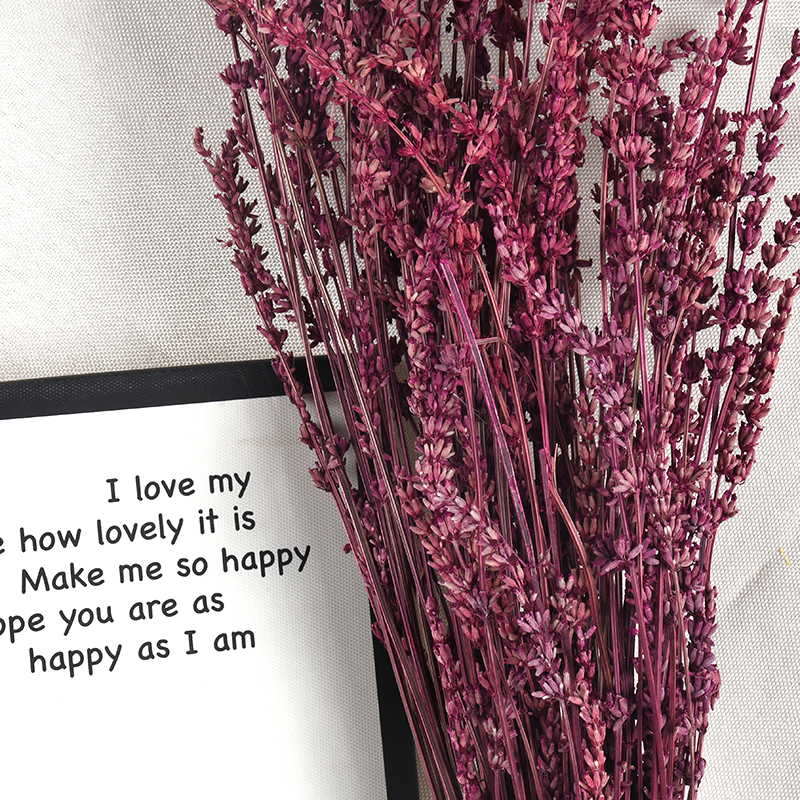 I love my
how lovely it is
Make me so happy
you are as
happy as I am